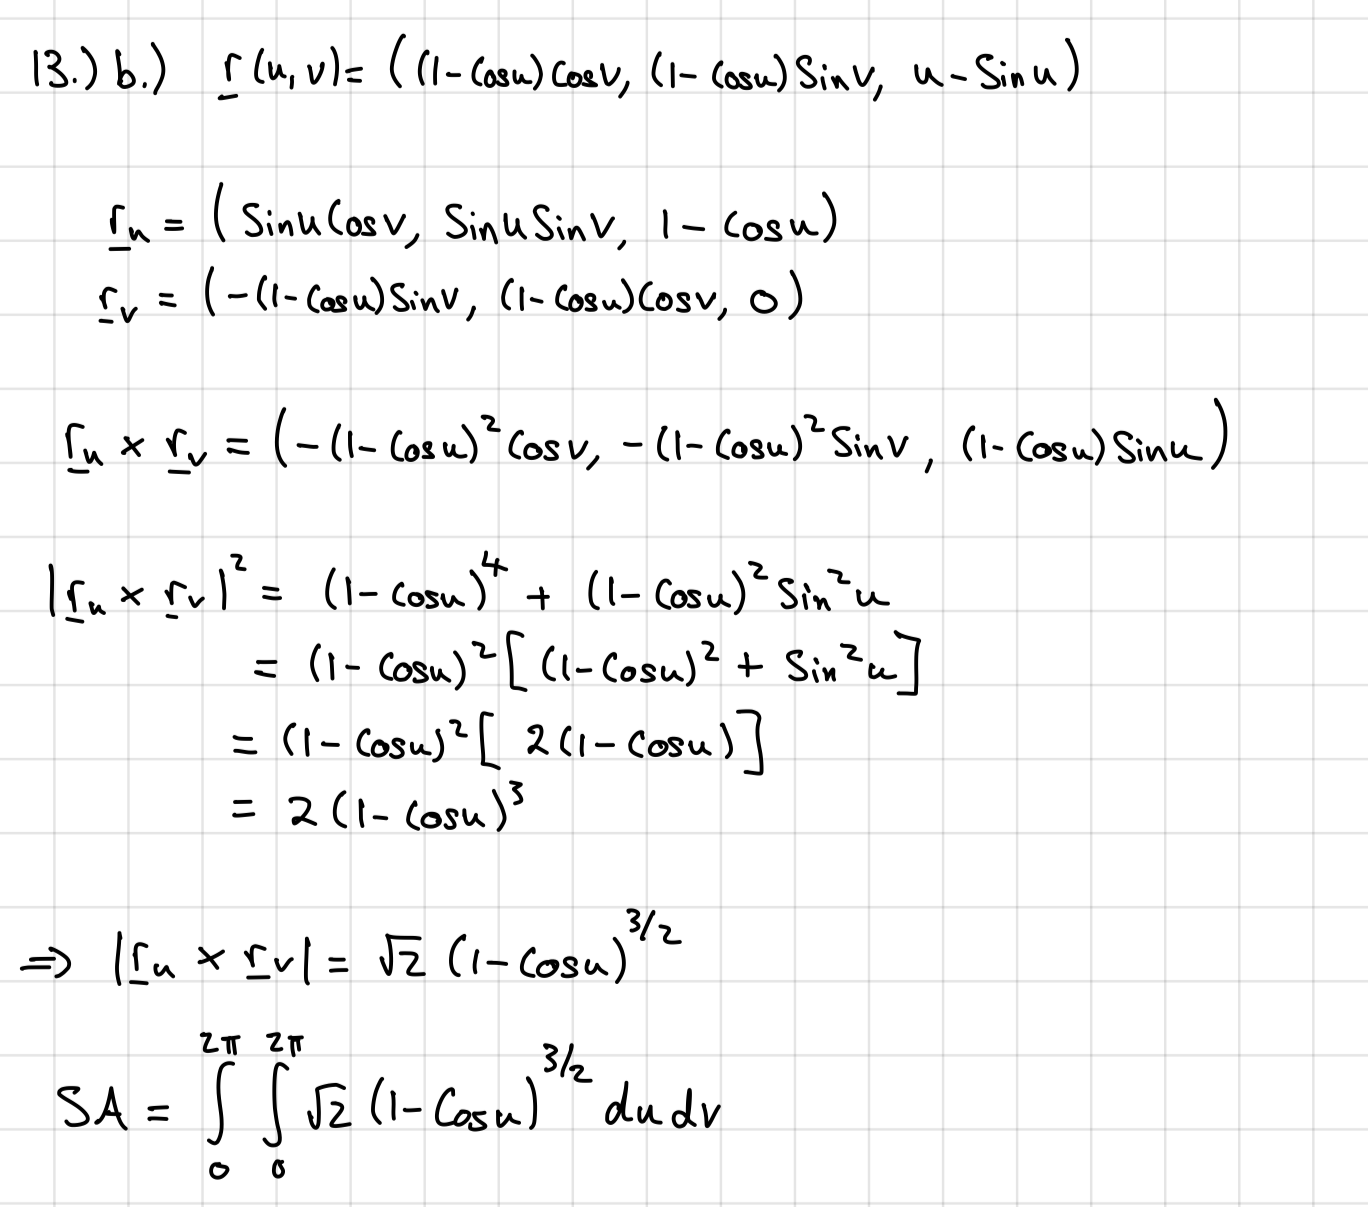 13.) b.) r(u,v) = ((1-Cosu)Cosv, (1-Cosu)Sinv, u-Sinu)
r_u = (SinuCosv, SinuSinv, 1-Cosu)
r_v = (-(1-Cosu)Sinv, (1-Cosu)Cosv, 0)
r_u × r_v = (-(1-Cosu)²Cosv, -(1-Cosu)²Sinv, (1-Cosu)Sinu)
|r_u × r_v|² = (1-Cosu)⁴ + (1-Cosu)²Sin²u
= (1-Cosu)²[(1-Cosu)² + Sin²u]
= (1-Cosu)²[2(1-Cosu)]
= 2(1-Cosu)³
⇒ |r_u × r_v| = √2 (1-Cosu)^{3/2}
SA = ∫₀^{2π} ∫₀^{2π} √2 (1-Cosu)^{3/2} du dv